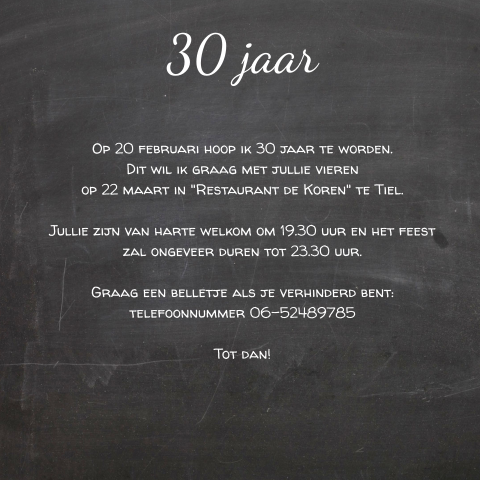 30 jaar
Op 20 februari hoop ik 30 jaar te worden.
Dit wil ik graag met jullie vieren
op 22 maart in "Restaurant de Koren" te Tiel.
Jullie zijn van harte welkom om 19.30 uur en het feest
zal ongeveer duren tot 23.30 uur.
Graag een belletje als je verhinderd bent:
telefoonnummer 06-52489785
Tot dan!